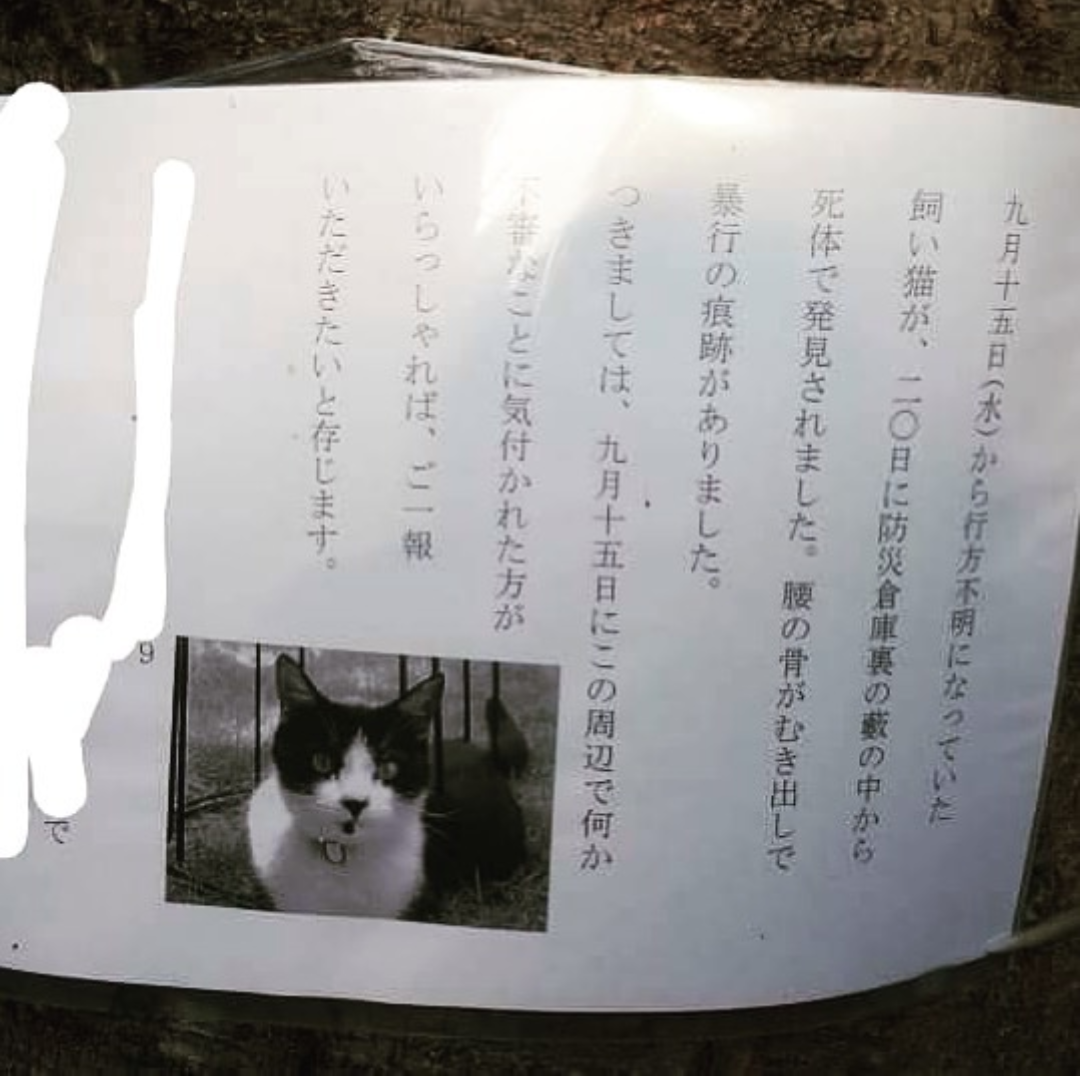 九月十五日(水)から行方不明になっていた
飼い猫が、二〇日に防災倉庫裏の藪の中から
死体で発見されました。腰の骨がむき出しで
暴行の痕跡がありました。
つきましては、九月十五日にこの周辺で何か
不審なことに気付かれた方が
いらっしゃれば、ご一報
いただきたいと存じます。
9
で